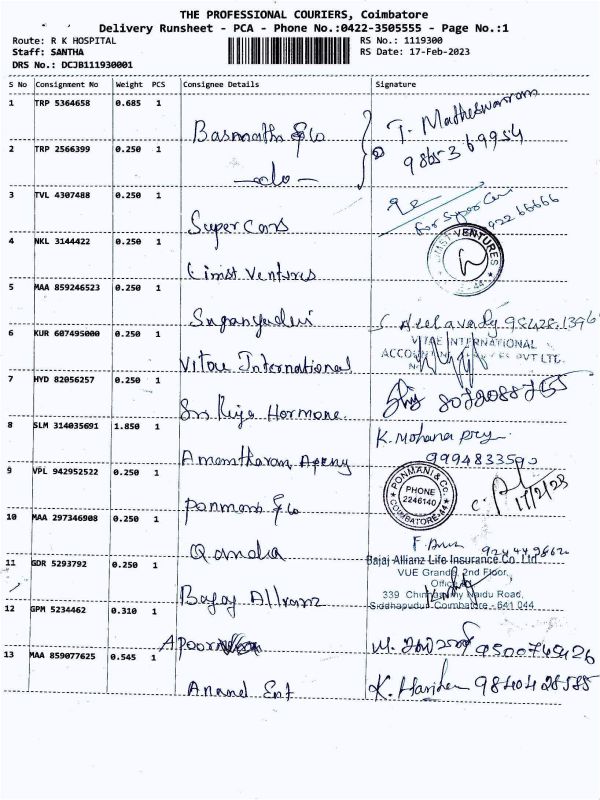 THE PROFESSIONAL COURIERS, Coimbatore
Delivery Runsheet - PCA - Phone No.:0422-3505555 - Page No.:1
Route: R K HOSPITAL
Staff: SANTHA
DRS No.: DCJB111930001
RS No.: 1119300
RS Date: 17-Feb-2023
S No Consignment No Weight PCS Consignee Details Signature
1 TRP 5364658 0.685 1 T. Matheswaram
98653 69954
2 TRP 2566399 0.250 1
-do-
3 TVL 4307488 0.250 1 for Super Cars
Super Cars
4 NKL 3144422 0.250 1 VENTURES
Cimst Ventures
5 MAA 859246523 0.250 1
6 KUR 607495000 0.250 1 VITAE INTERNATIONAL
PVT LTD.
Vitae International
7 HYD 82056257 0.250 1 8072088755
Sri Riya Hormone.
8 SLM 314035691 1.850 1 K. Mohana
9994833590
9 VPL 942952522 0.250 1 PONMANI & CO.
PHONE
2246140
COIMBATORE-44
17/2/23
Ponmani & Co
10 MAA 297346908 0.250 1
11 GDR 5293792 0.250 1 Bajaj Allianz Life Insurance Co. Ltd
VUE Grande, 2nd Floor,
339 Chinnaswamy Naidu Road,
Siddhapudur Coimbatore - 641 044
Bajaj Allianz
12 GPM 5234462 0.310 1 9500745426
Apoorva
13 MAA 859077625 0.545 1 K. Hariharan 9840428585
Anand Ent